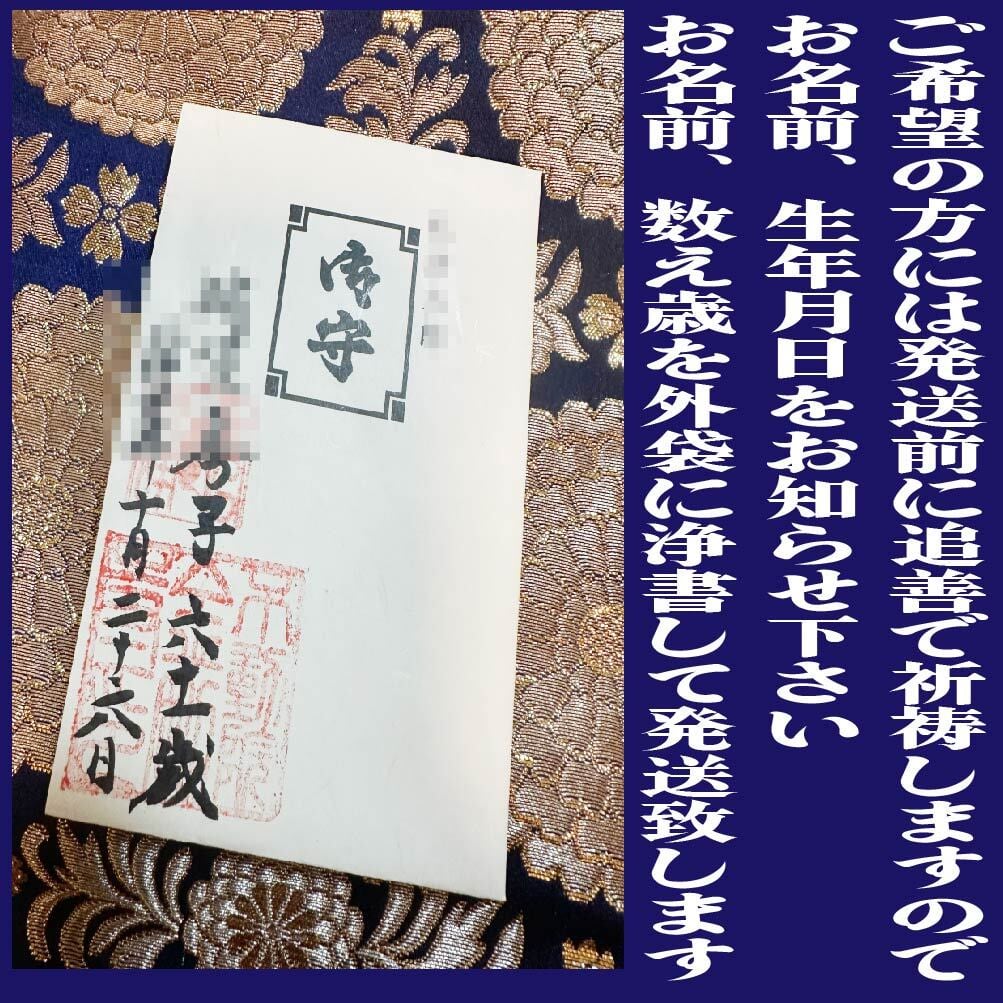 ご希望の方には発送前に追善で祈祷しますので
お名前、生年月日をお知らせ下さい
お名前、数え歳を外袋に浄書して発送致します
御守
子 六十一歳
十月二十八日